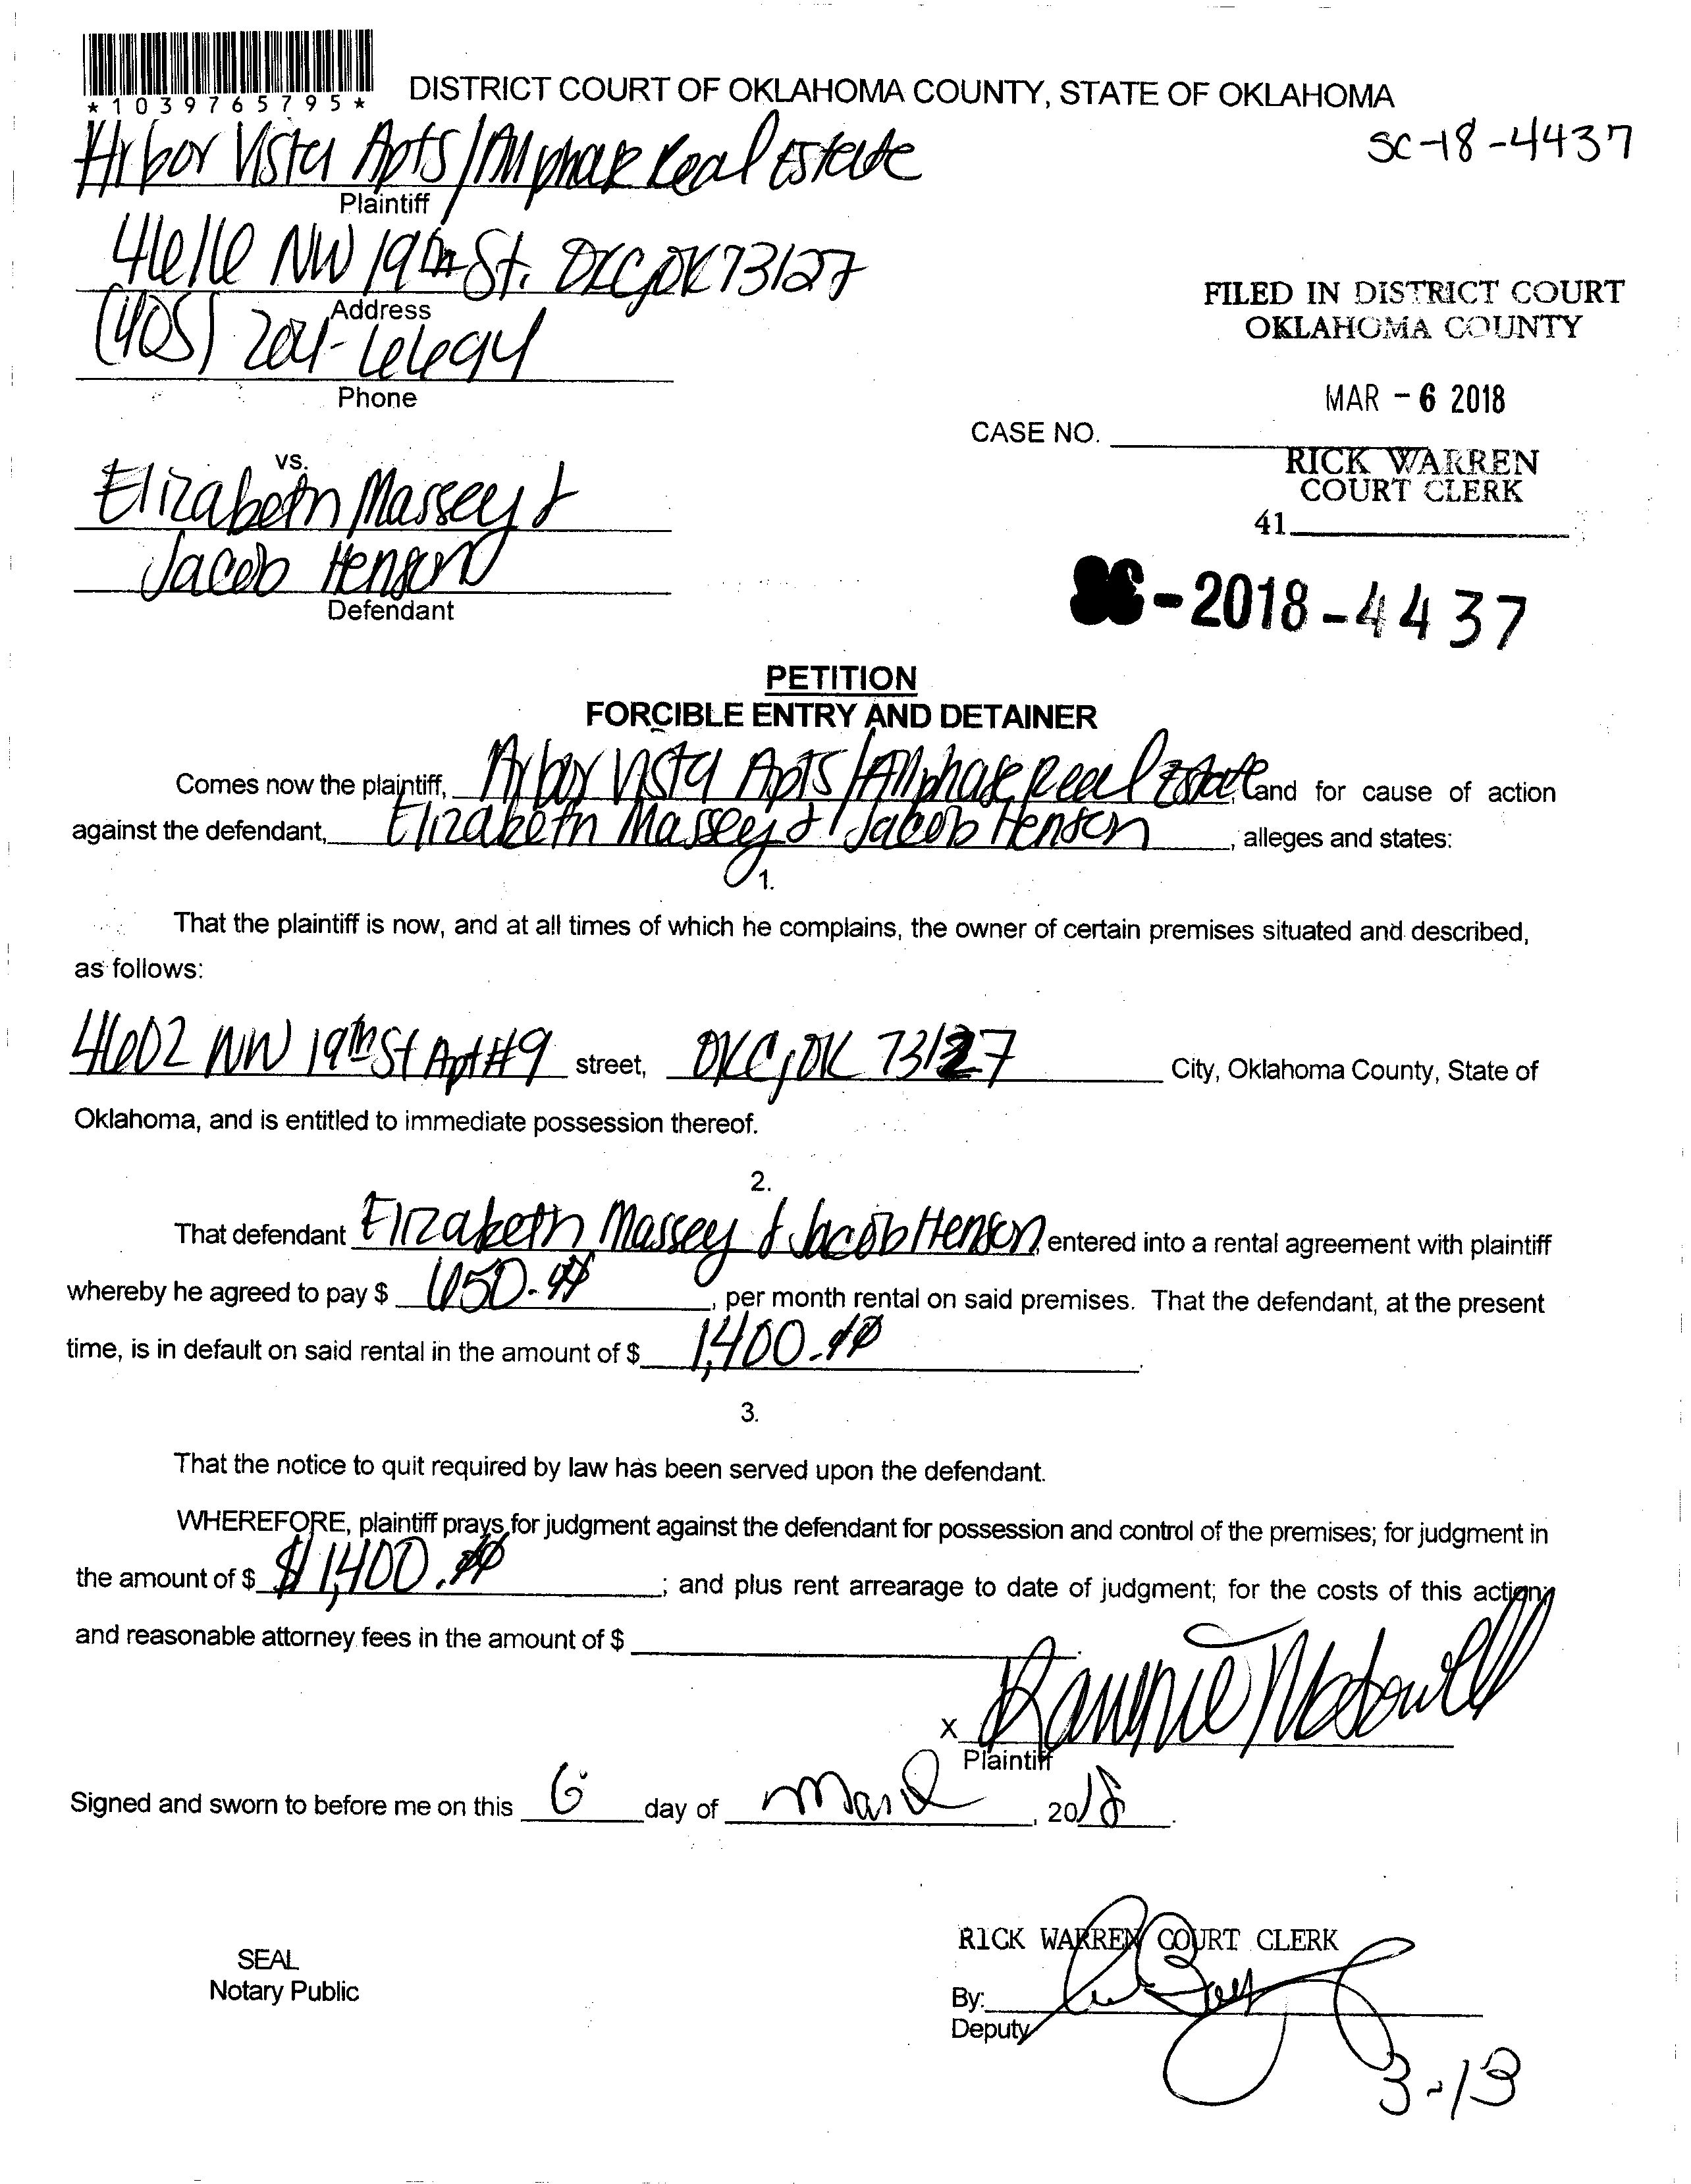 *1039765795*
DISTRICT COURT OF OKLAHOMA COUNTY, STATE OF OKLAHOMA
SC-18-4437
Arbor Vista Apts/Allphase Real Estate
Plaintiff
4616 NW 19th St. OKC, OK 73127
Address
(405) 204-6694
Phone
FILED IN DISTRICT COURT
OKLAHOMA COUNTY
MAR - 6 2018
CASE NO.
RICK WARREN
COURT CLERK
41
vs.
Elizabeth Massey &
Jacob Henson
Defendant
-2018-4437
PETITION
FORCIBLE ENTRY AND DETAINER
Comes now the plaintiff, Arbor Vista Apts/Allphase Real Estate, and for cause of action
against the defendant, Elizabeth Massey & Jacob Henson, alleges and states:
1.
That the plaintiff is now, and at all times of which he complains, the owner of certain premises situated and described,
as follows:
4602 NW 19th St Apt #9 street, OKC, OK 73127 City, Oklahoma County, State of
Oklahoma, and is entitled to immediate possession thereof.
2.
That defendant Elizabeth Massey & Jacob Henson, entered into a rental agreement with plaintiff
whereby he agreed to pay $ 650.00, per month rental on said premises. That the defendant, at the present
time, is in default on said rental in the amount of $ 1,400.00.
3.
That the notice to quit required by law has been served upon the defendant.
WHEREFORE, plaintiff prays for judgment against the defendant for possession and control of the premises; for judgment in
the amount of $ $1,400.00; and plus rent arrearage to date of judgment; for the costs of this action;
and reasonable attorney fees in the amount of $
X
Plaintiff
Signed and sworn to before me on this 6 day of March, 2018.
SEAL
Notary Public
RICK WARREN COURT CLERK
By:
Deputy
3-13